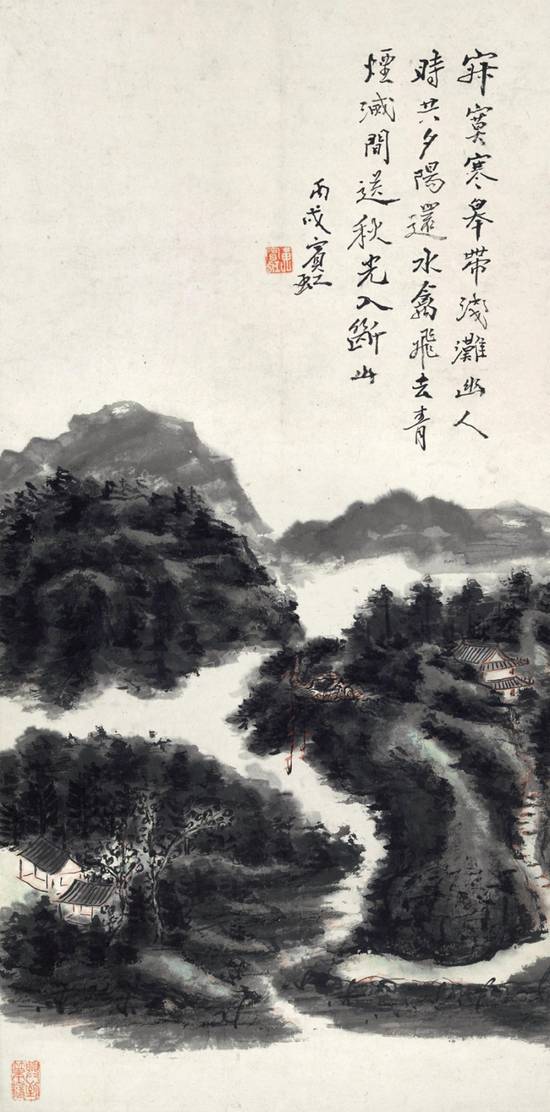 寂寞寒皋带淺灘幽人
時共夕陽還水禽飛去青
煙滅間送秋光入斷山
丙戌賓虹